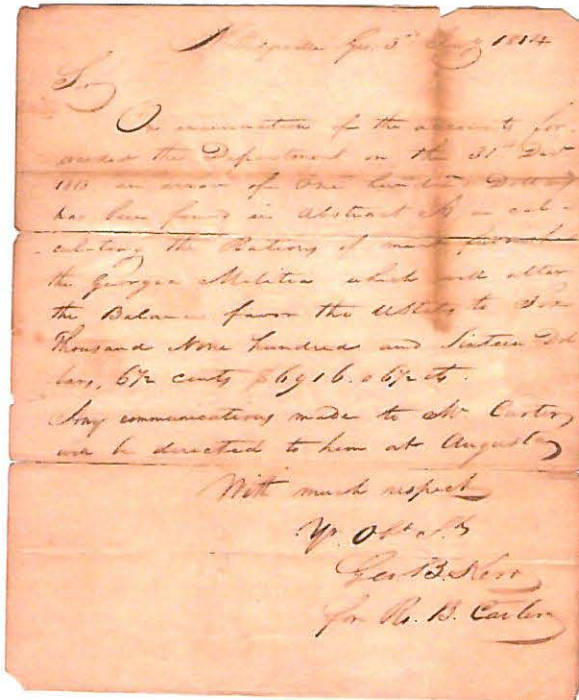 Milledgeville Geo. 3d Jany 1814
Sir
On examination of the accounts for-
warded the Department on the 31st Decr
1813 an error of One hundred Dollars
has been found in Abstract A in cal-
culating the Rations of meat
the Georgia Militia which will alter
the Balance favor the UStates to Six
Thousand Nine hundred and Sixteen Dol
lars, 6½ cents $6916.06½ cts.
Any communications made to Mr Carter
will be directed to him at Augusta
With much respect
Yr. Obt St
Geo B. Kerr
for Ro. B. Carter